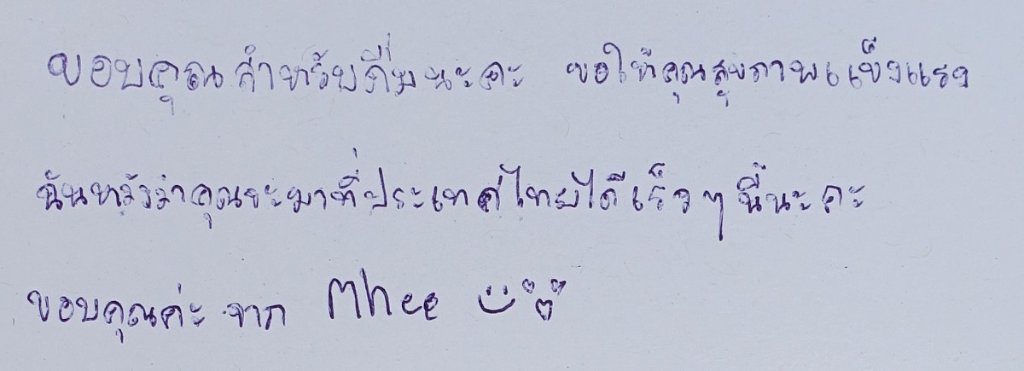 ขอบคุณสำหรับดื่มนะคะ ขอให้คุณสุขภาพแข็งแรง
ฉันหวังว่าคุณจะมาที่ประเทศไทยได้เร็วๆนี้นะคะ
ขอบคุณค่ะ จาก Mhee